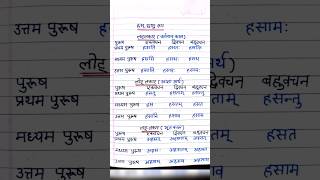 हस् धातु रूप
लट्लकार (वर्तमान काल)
पुरूष एकवचन द्विवचन बहुवचन
प्रथम पुरूष हसति हसतः हसन्ति
उत्तम पुरूष हसामि हसावः हसामः
लोट् लकार (आज्ञा अर्थ)
पुरूष एकवचन द्विवचन बहुवचन
प्रथम पुरूष हसतु हसताम् हसन्तु
मध्यम पुरूष हस हसतम् हसत
उत्तम पुरूष हसानि हसाव हसाम
पुरूष एकवचन द्विवचन बहुवचन
प्रथम पुरूष अहसत् अहसताम् अहसन्
मध्यम पुरूष अहसः अहसतम् अहसत
उत्तम पुरूष अहसम् अहसाव अहसाम